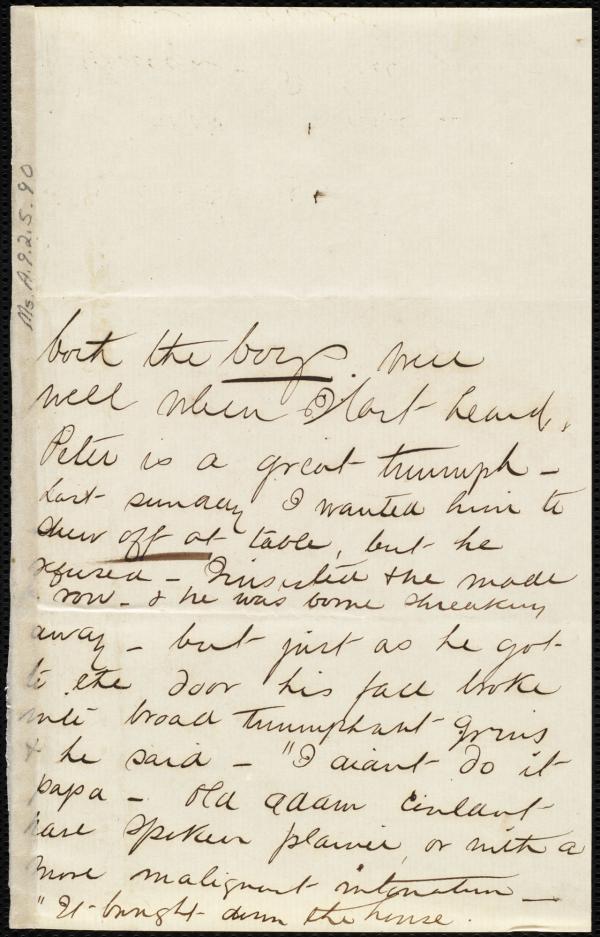 Ms. A.9.2.5.90
both the boys. were
well when I last heard,
Peter is a great triumph -
Last sunday I wanted him to
shew off at table, but he
refused - I insisted & he made
a row - & he was borne shreaking
away - but just as he got
to the door his face broke
into broad triumphant grins
& he said - "I diant do it
papa - old adam couldant
have spoken plainer or with a
more malignant intonation -
"It brought down the house.